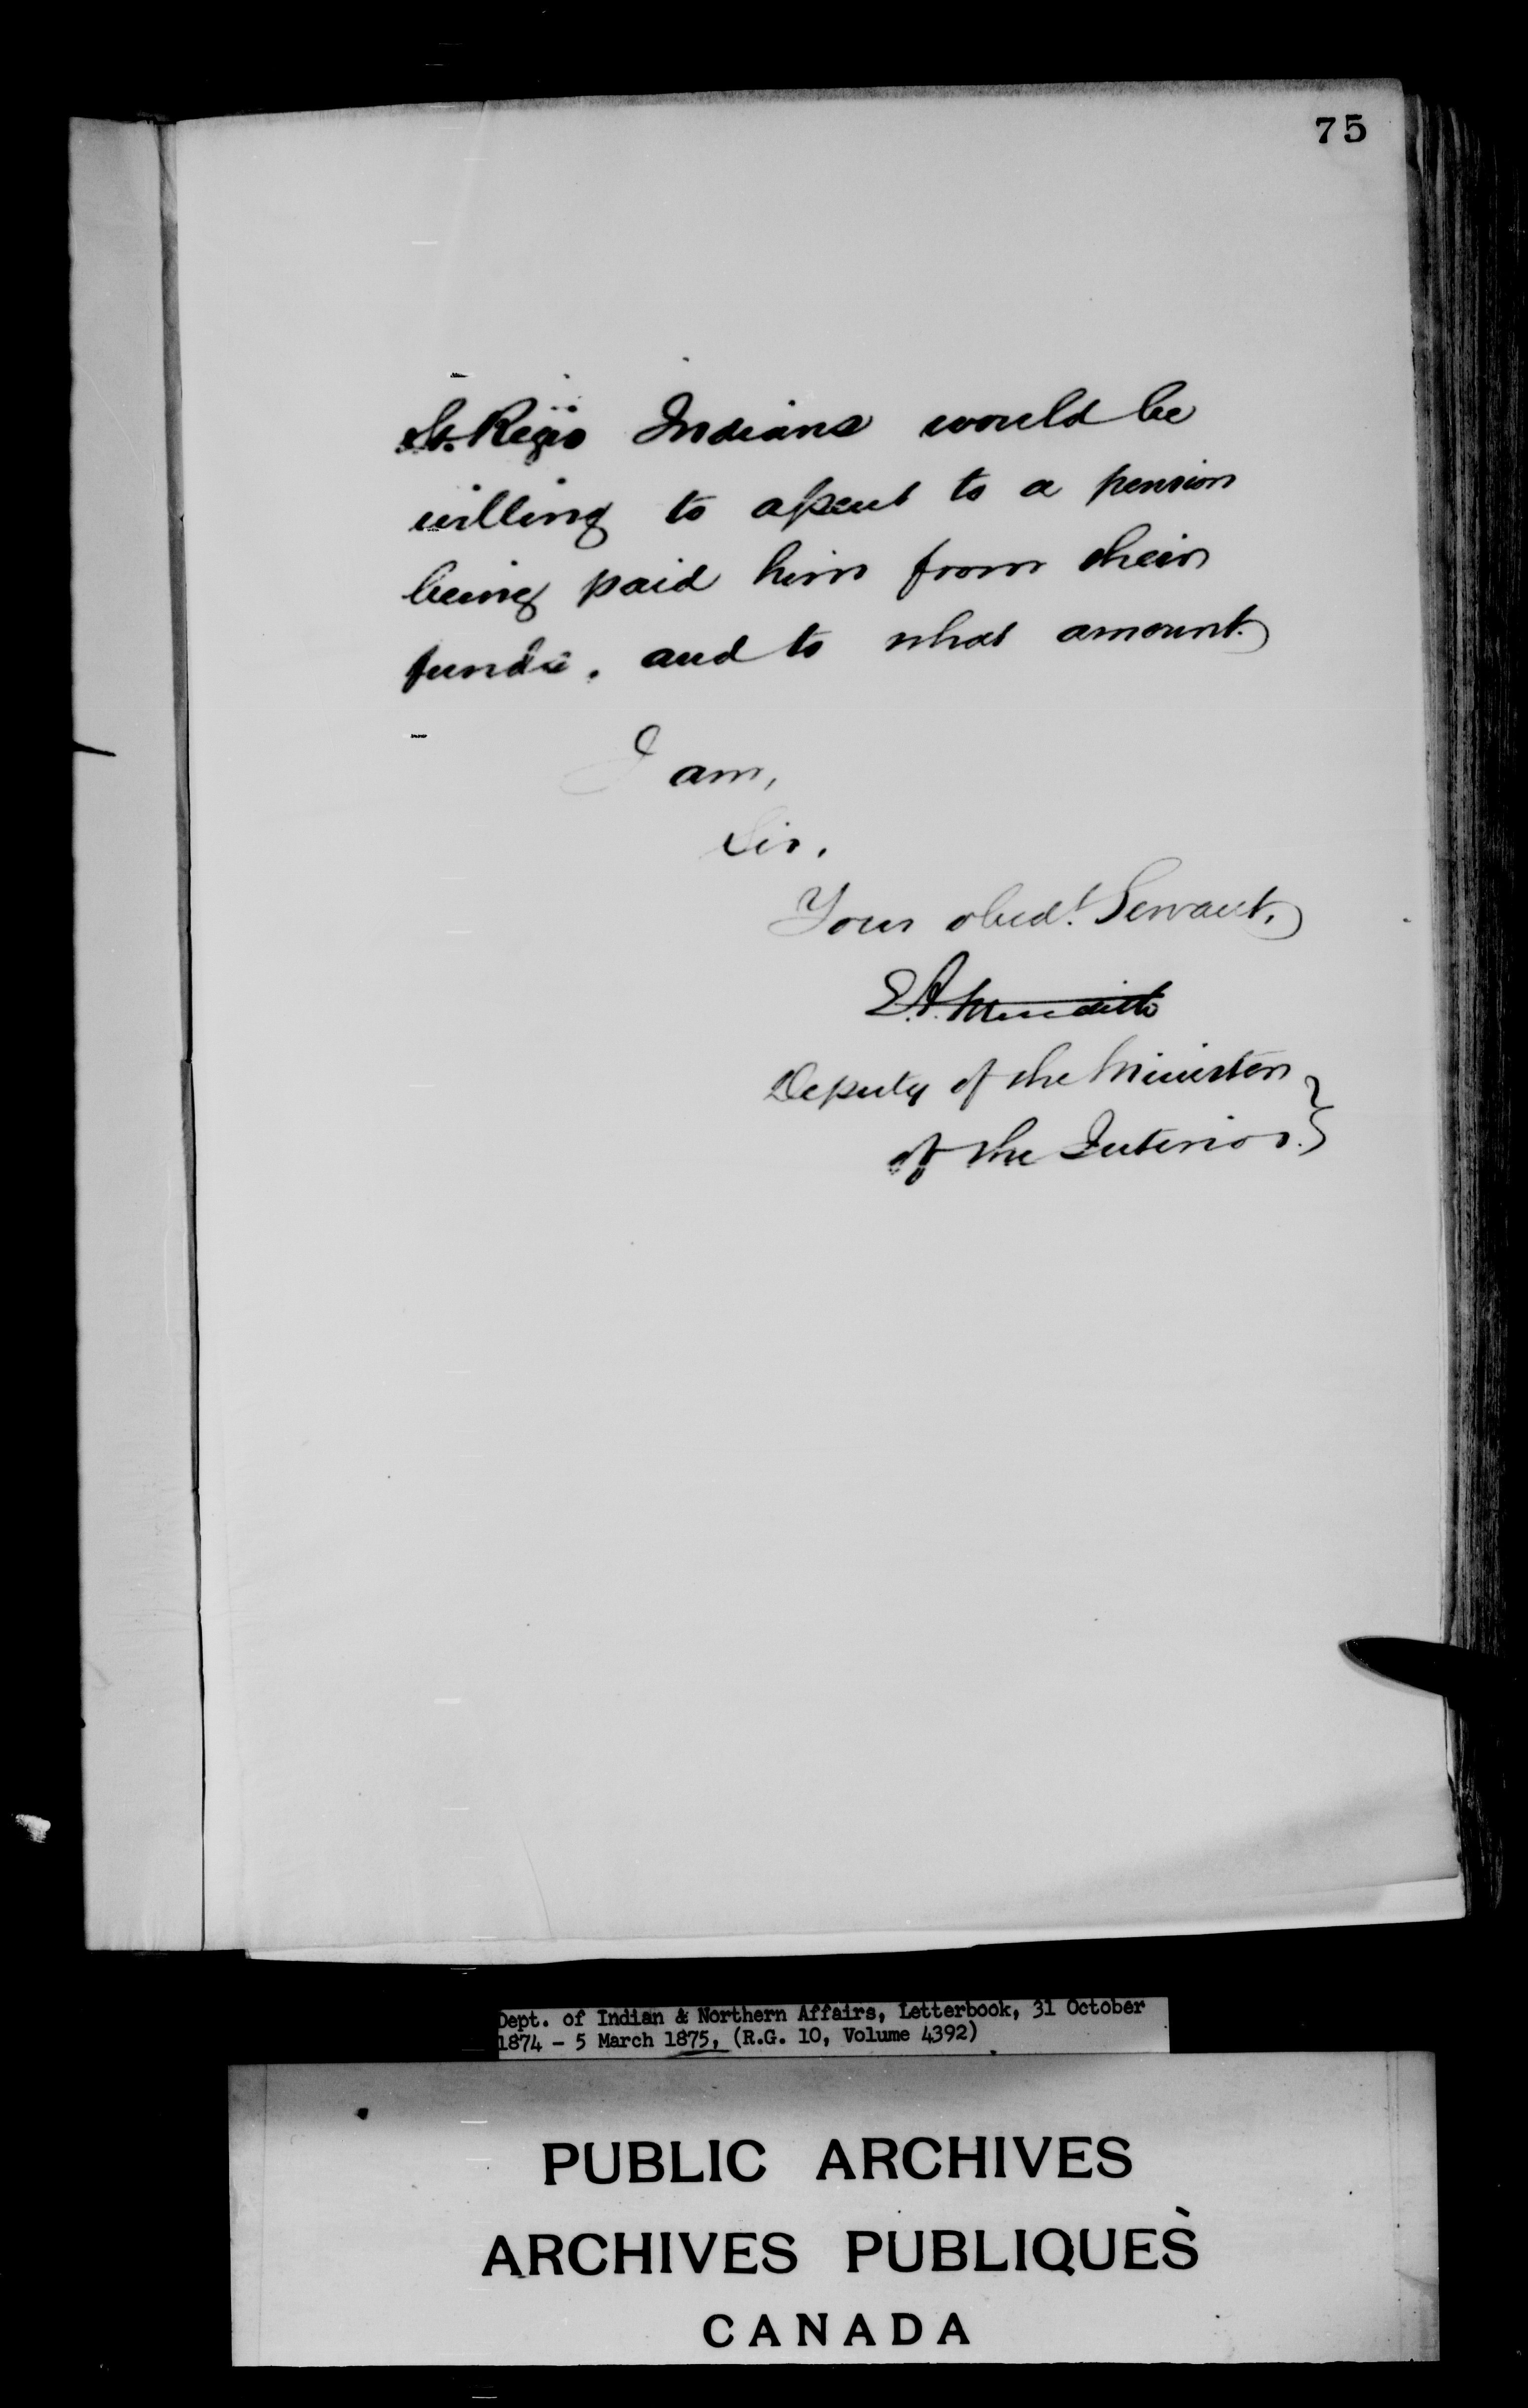 75
St. Regis Indians would be
willing to assent to a pension
being paid him from their
funds, and to what amount.
I am,
Sir,
Your obedt. Servant,
E.A. Meredith
Deputy of the Minister
of the Interior.
Dept. of Indian & Northern Affairs, Letterbook, 31 October
1874 - 5 March 1875, (R.G. 10, Volume 4392)
PUBLIC ARCHIVES
ARCHIVES PUBLIQUES
CANADA